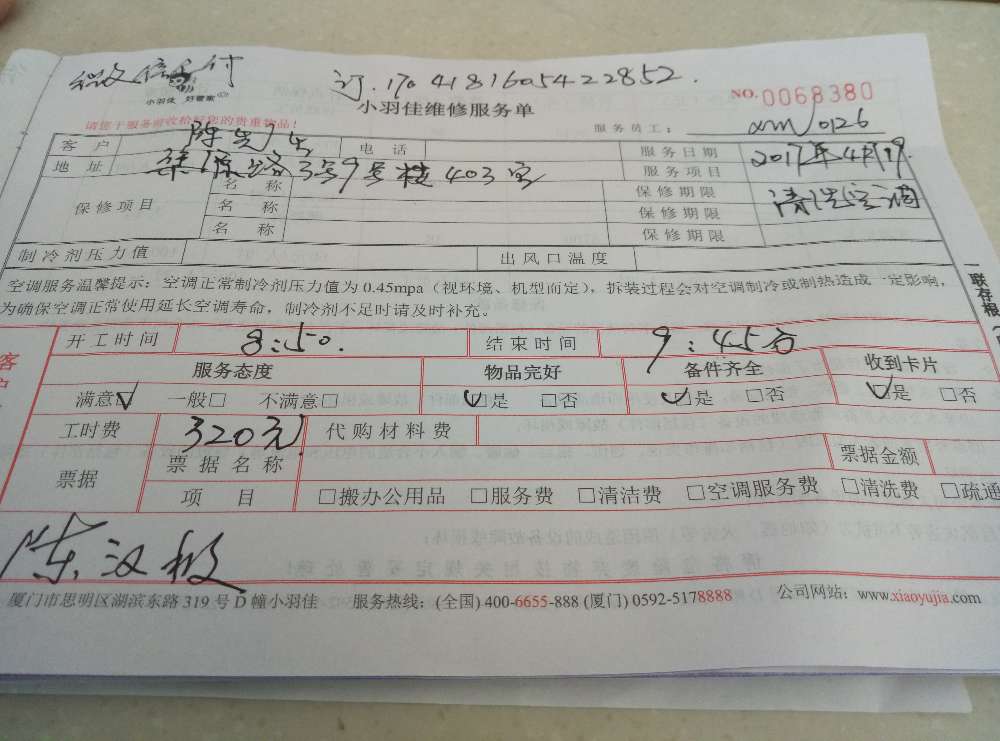 微信支付
订.1704181605422852.
小羽佳 好管家
小羽佳维修服务单
NO.0068380
请您于服务前收拾好您的贵重物品！
服务员工： xm0126
客 户 陈先生 电 话 服务日期 2017年4月19
地 址 3号9号楼403室 服务项目 清洗空调
保修项目 名 称 保修期限
名 称 保修期限
名 称 保修期限
制冷剂压力值 出风口温度
空调服务温馨提示：空调正常制冷剂压力值为 0.45mpa（视环境、机型而定），拆装过程会对空调制冷或制热造成一定影响，
为确保空调正常使用延长空调寿命，制冷剂不足时请及时补充。
一联存根
客户
开工时间 8:50. 结束时间 9:45分
服务态度 物品完好 备件齐全 收到卡片
满意☑ 一般□ 不满意□ ☑是 □否 ☑是 □否 ☑是 □否
工时费 320元 代购材料费
票据 票据名称 票据金额
项 目 □搬办公用品 □服务费 □清洁费 □空调服务费 □清洗费 □疏通
陈汉极
厦门市思明区湖滨东路 319 号 D 幢小羽佳 服务热线：(全国) 400-6655-888 (厦门) 0592-5178888 公司网站：www.xiaoyujia.com